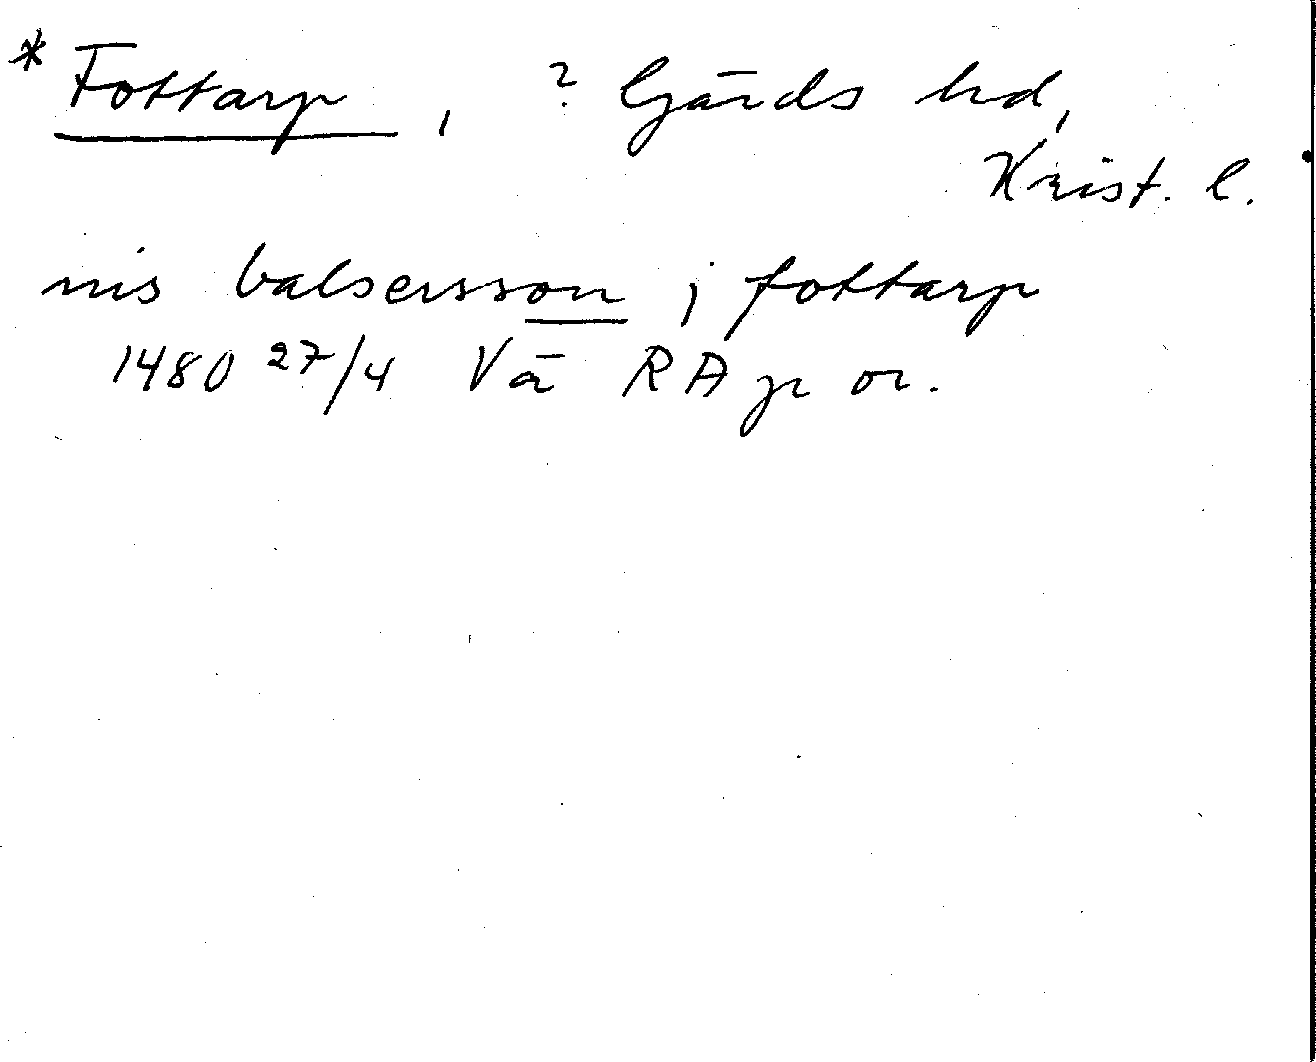 * Fottarp, ? Gärds hd,
Krist. l.
nis balsersson j fottarp
1480 27/4 Vä RA p or.